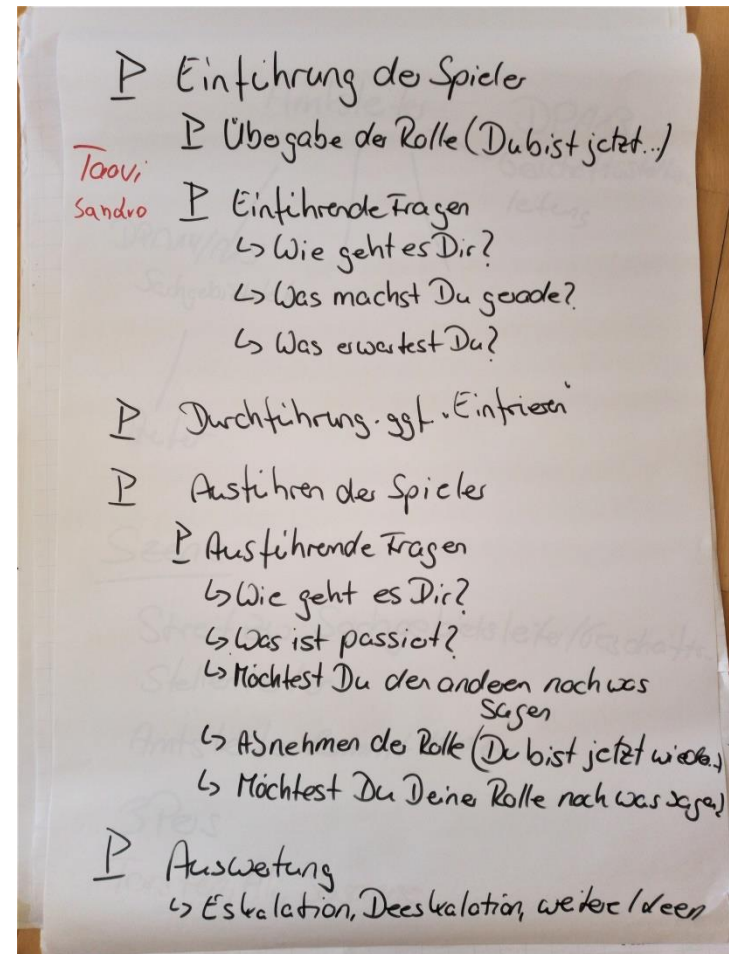 P Einführung der Spieler
P Übergabe der Rolle (Du bist jetzt...)
Taovi
Sandro
P Einführende Fragen
↳ Wie geht es Dir?
↳ Was machst Du gerade?
↳ Was erwartest Du?
P Durchführung. ggf. "Einfrieren"
P Ausführen der Spieler
P Ausführende Fragen
↳ Wie geht es Dir?
↳ Was ist passiert?
↳ Möchtest Du den anderen noch was
sagen
↳ Abnehmen der Rolle (Du bist jetzt wieder..)
↳ Möchtest Du Deiner Rolle noch was sagen?
P Auswertung
↳ Eskalation, Deeskalation, weitere Ideen